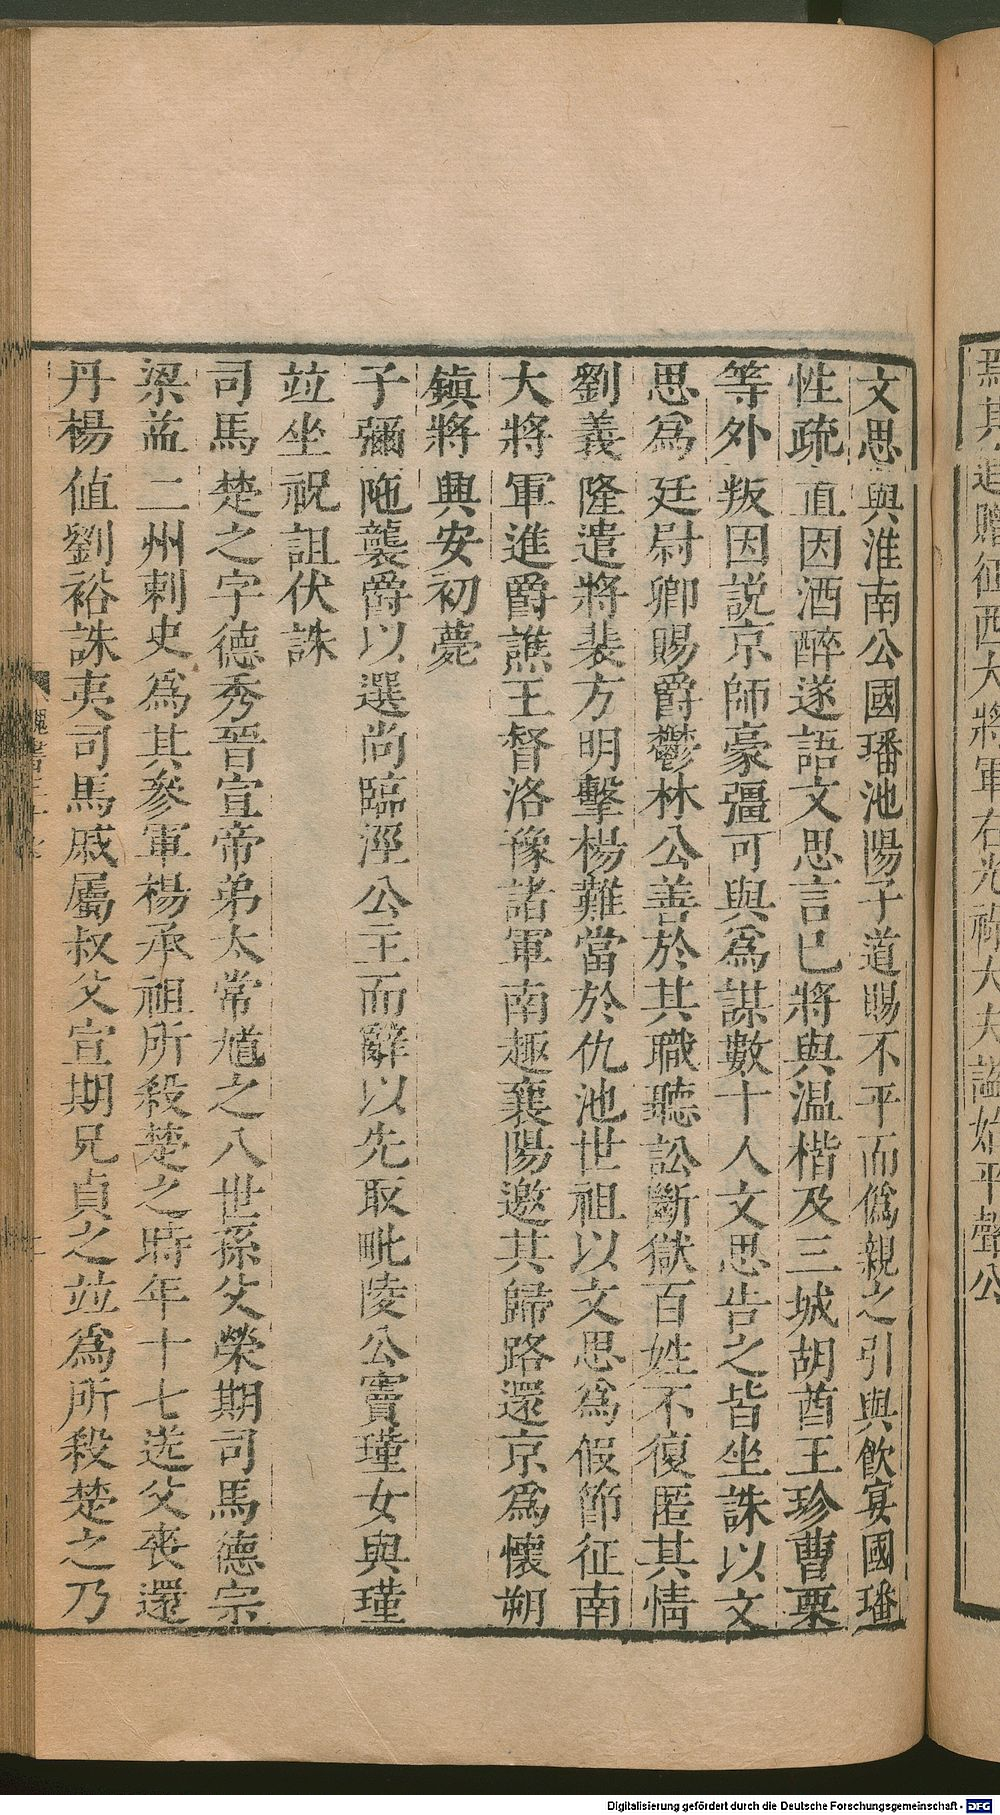 焉真追贈征西大將軍右光祿大夫諡始平聲公
文思與淮南公國璠池陽子道賜不平而僞親之引與飲宴國璠
性疏直因酒醉遂語文思言已將與温楷及三城胡酋王珍曹栗
等外叛因説京師豪彊可與爲謀數十人文思告之皆坐誅以文
思爲廷尉卿賜爵鬱林公善於其職聽訟斷獄百姓不復匿其情
劉義隆遣將裴方明擊楊難當於仇池世祖以文思爲假節征南
大將軍進爵譙王督洛豫諸軍南趣襄陽邀其歸路還京爲懷朔
鎮將興安初薨
子彌陁襲爵以選尚臨涇公主而辭以先取毗陵公竇瑾女與瑾
竝坐祝詛伏誅
司馬楚之字德秀晉宣帝弟太常馗之八世孫父榮期司馬德宗
梁益二州刺史爲其參軍楊承祖所殺楚之時年十七送父喪還
丹楊值劉裕誅夷司馬戚屬叔父宣期兄貞之竝爲所殺楚之乃
Digitalisierung gefördert durch die Deutsche Forschungsgemeinschaft - DFG